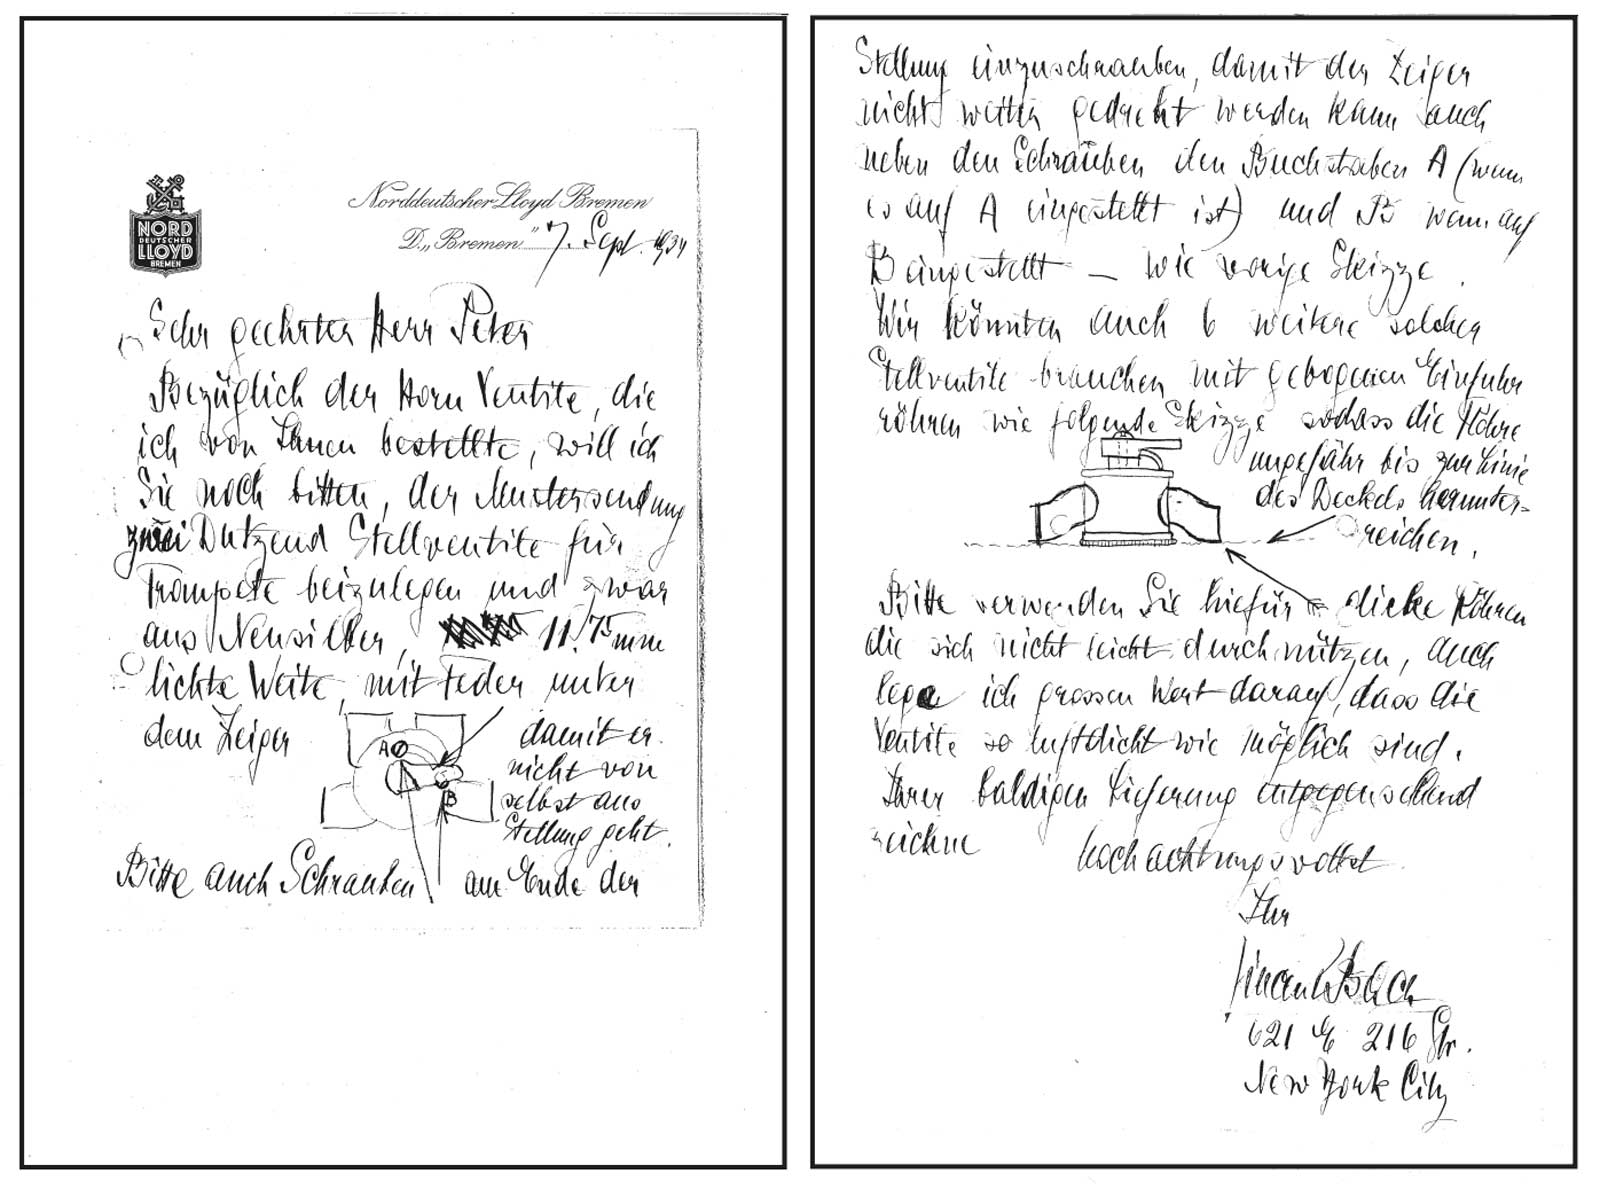 NORD
DEUTSCHER
LLOYD
BREMEN
Norddeutscher Lloyd Bremen
D. „Bremen" 7. Sept. 1934
Sehr geehrter Herr Peter
Bezüglich der Horn Ventile, die
ich von Ihnen bestellte, will ich
Sie noch bitten, der Mustersendung
zwei Dutzend Stellventile für
Trompete beizulegen und zwar
aus Neusilber, 11.75 mm
lichte Weite, mit Feder unter
dem Zeiger
damit er
nicht von
selbst aus
Stellung geht.
A
B
Bitte auch Schrauben am Ende der
Stellung einzuschrauben, damit der Zeiger
nicht weiter gedreht werden kann auch
neben den Schrauben den Buchstaben A (wenn
es auf A eingestellt ist) und B wenn auf
B eingestellt – wie vorige Skizze.
Wir könnten auch 6 weitere solcher
Stellventile brauchen mit gebogenen Einfuhr
röhren wie folgende Skizze sodass die Röhre
ungefähr bis zur Linie
des Deckels herunter-
reichen.
Bitte verwenden Sie hiefür dicke Röhren
die sich nicht leicht durchnützen, auch
lege ich grossen Wert darauf, dass die
Ventile so luftdicht wie möglich sind.
Ihrer baldigen Lieferung entgegensehend
zeichne hochachtungsvollst
Ihr
Vincent Bach
621 E 216 Str.
New York City